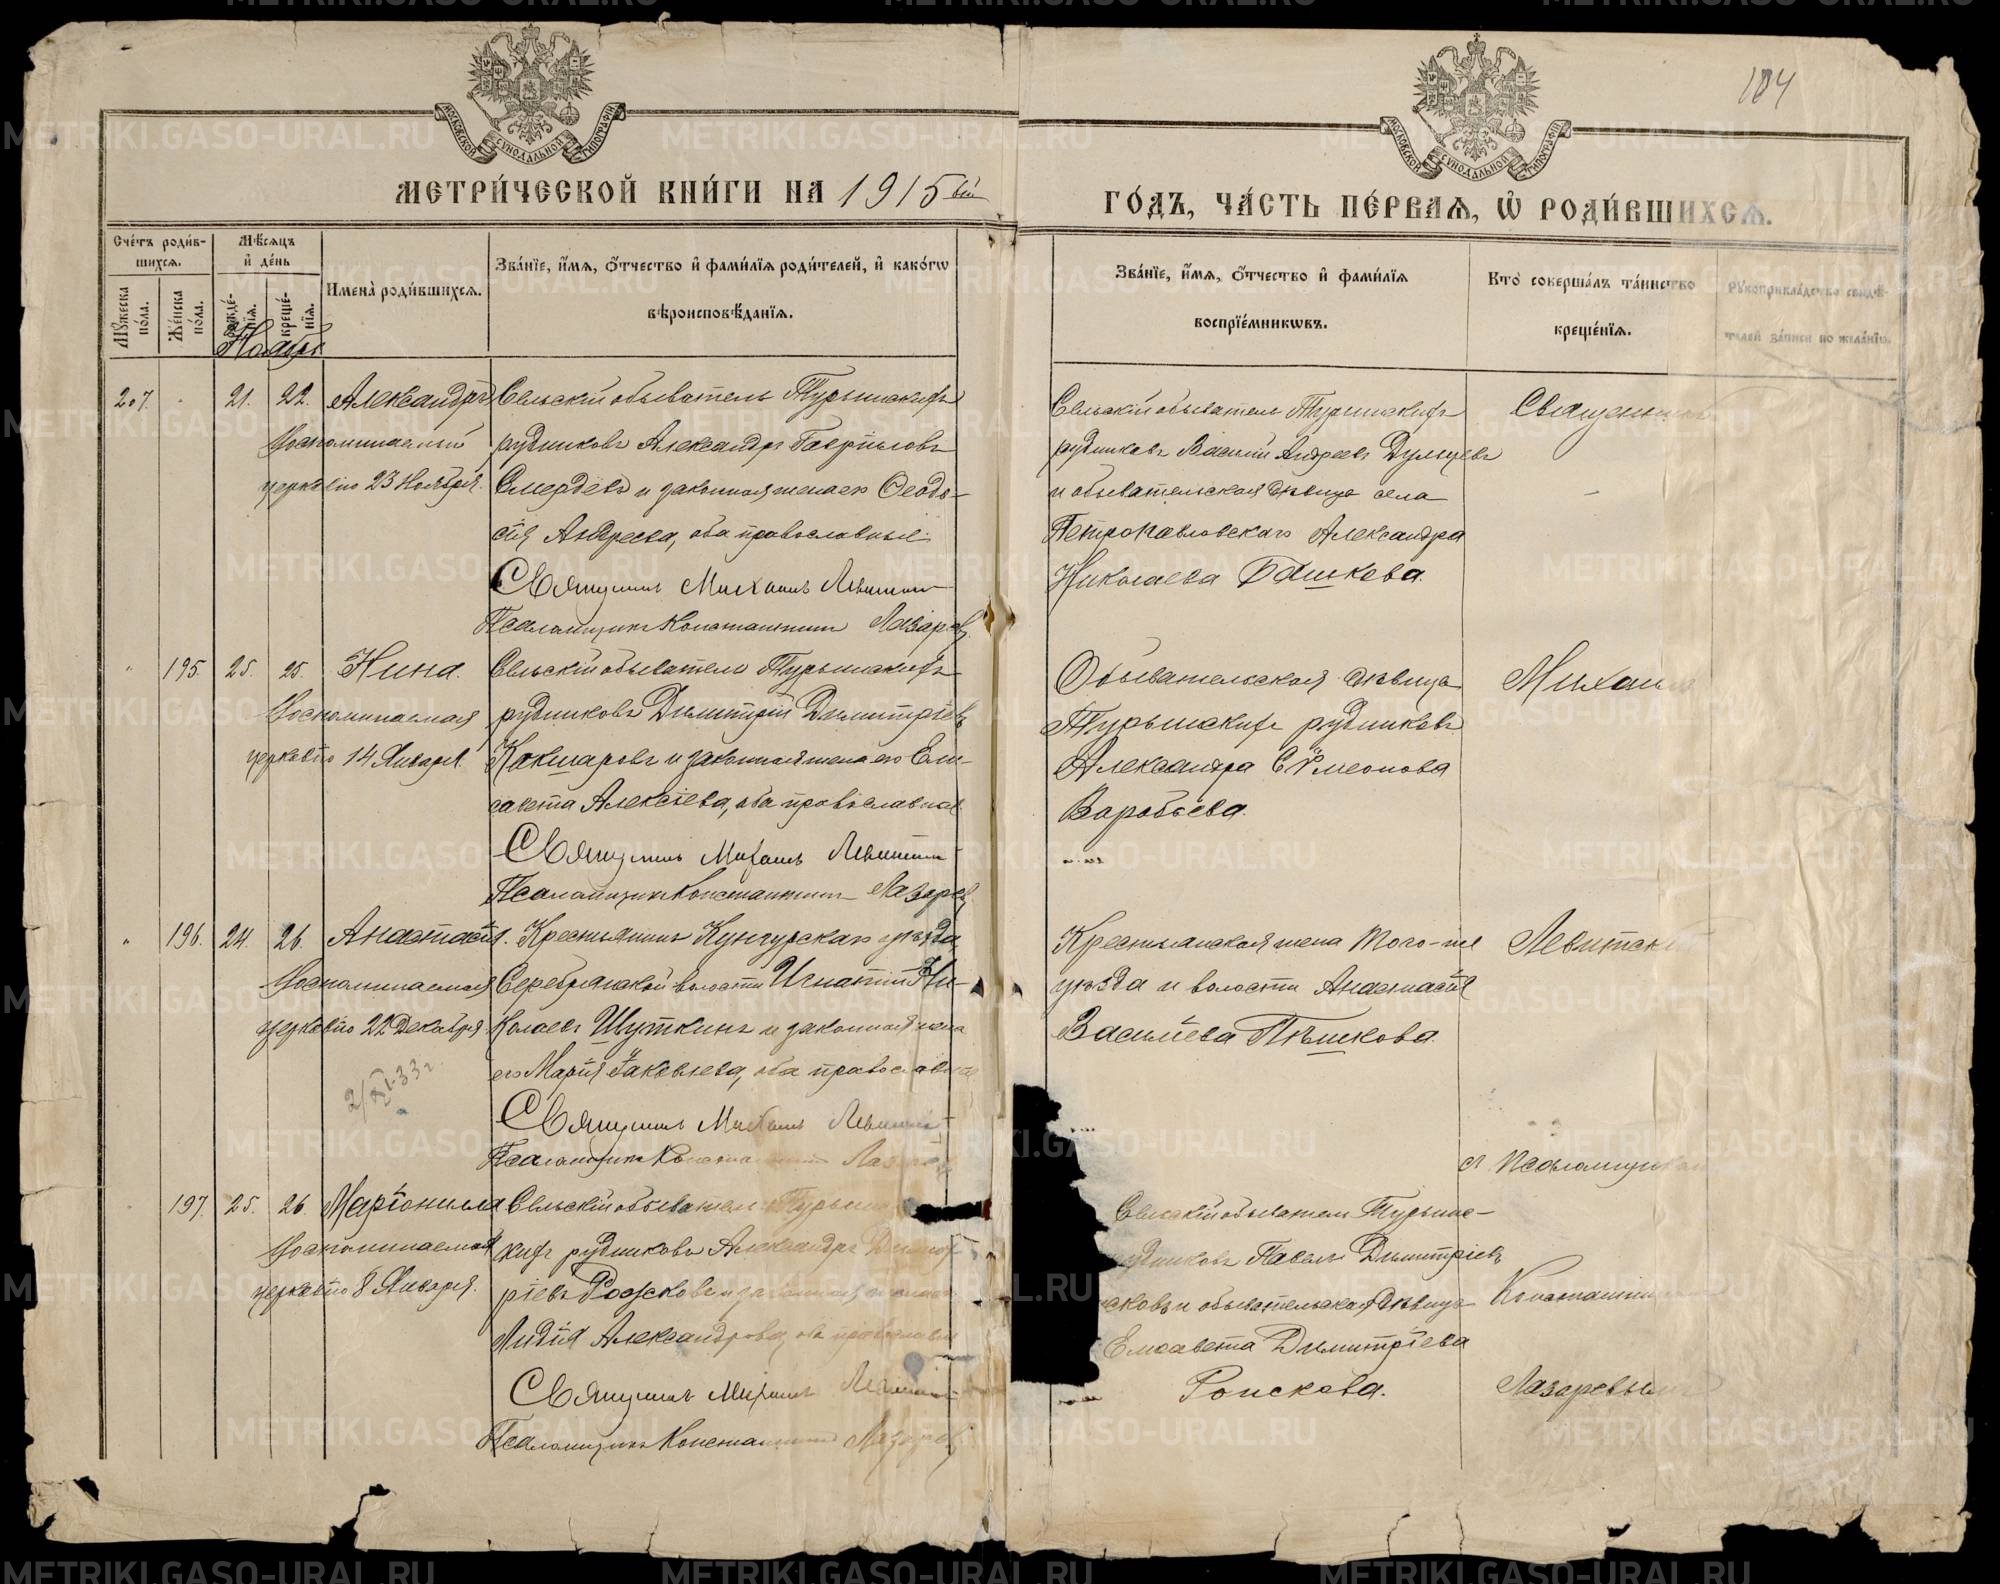 184
МОСКОВСКОЙ СѴНОДАЛЬНОЙ ТИПОГРАФІИ
МОСКОВСКОЙ СѴНОДАЛЬНОЙ ТИПОГРАФІИ
МЕТРИ́ЧЕСКОЙ КНИ́ГИ НА 1915ый
ГО́ДЪ, ЧА́СТЬ ПЕ́РВАѦ, Ѡ҆ РОДИ́ВШИХСѦ.
Сче́тъ роди́в-
шихсѧ.
Мѣ́сѧцъ
и҆ де́нь
Мꙋ́жеска по́ла.
Же́нска по́ла.
рожде́-
нїѧ.
креще́-
нїѧ.
Имена̀ роди́вшихсѧ.
Зва́нїе, и҆́мѧ, ѻ҆́тчество и҆ фами́лїѧ роди́телей, и҆ како́гѡ
вѣроисповѣ́данїѧ.
Зва́нїе, и҆́мѧ, ѻ҆́тчество и҆ фами́лїѧ
воспрїе́мникѡвъ.
Кто̀ соверша́лъ та́инство
креще́нїѧ.
Рꙋкоприкла́дство свидѣ́-
телей за́писи по жела́нїю.
Ноябрь
207. 21. 22. Александръ
Воспоминаемый
церковію 23 Ноября.
Сельскій обыватель Турьинскихъ
рудниковъ Александръ Гавріиловъ
Смердевъ и законная жена его Ѳеодо-
сія Андреева, оба православные.
Священникъ Михаилъ Левитскій
Псаломщикъ Константинъ Лазаревъ
Сельскій обыватель Турьинскихъ
рудниковъ Василій Андреевъ
и обывательская дѣвица села
Петропавловскаго Александра
Николаева Башкова.
Священникъ
" 195. 25. 25. Нина.
Воспоминаемая
церковію 14 Января.
Сельскій обыватель Турьинскихъ
рудниковъ Димитрій Димитріевъ
Кокшаровъ и законная жена его Ели-
савета Алексіева, оба православные
Священникъ Михаилъ Левитскій
Псаломщикъ Константинъ Лазаревъ
Обывательская дѣвица
Турьинскихъ рудниковъ
Александра Сѵмеонова
Воробьева.
Михаилъ
" 196. 24. 26. Анастасія.
Воспоминаемая
церковію 22 Декабря
2/XI-33 г.
Крестьянинъ Кунгурскаго уѣзда
Серебрянской волости Игнатій Ни-
колаевъ Шуткинъ и законная жена
его Марія Іаковлева, оба православные
Священникъ Михаилъ Левитскій
Псаломщикъ Константинъ Лазаревъ
Крестьянская жена того-же
уѣзда и волости Анастасія
Василіева Пѣшкова.
Левитскій
съ псаломщикомъ
197. 25. 26. Маріонилла
Воспоминаемая
церковію 8 Января.
Сельскій обыватель Турьинс-
кихъ рудниковъ Александръ Димит-
ріевъ Рожковъ и законная жена
Лидія Александрова, оба православные
Священникъ Михаилъ Левитскій
Псаломщикъ Константинъ Лазаревъ
Сельскій обыватель Турьинс-
рудниковъ Павелъ Димитріевъ
и обывательская дѣвица
Елисавета Димитріева
Рожкова.
Константиномъ
Лазаревымъ
METRIKI.GASO-URAL.RU